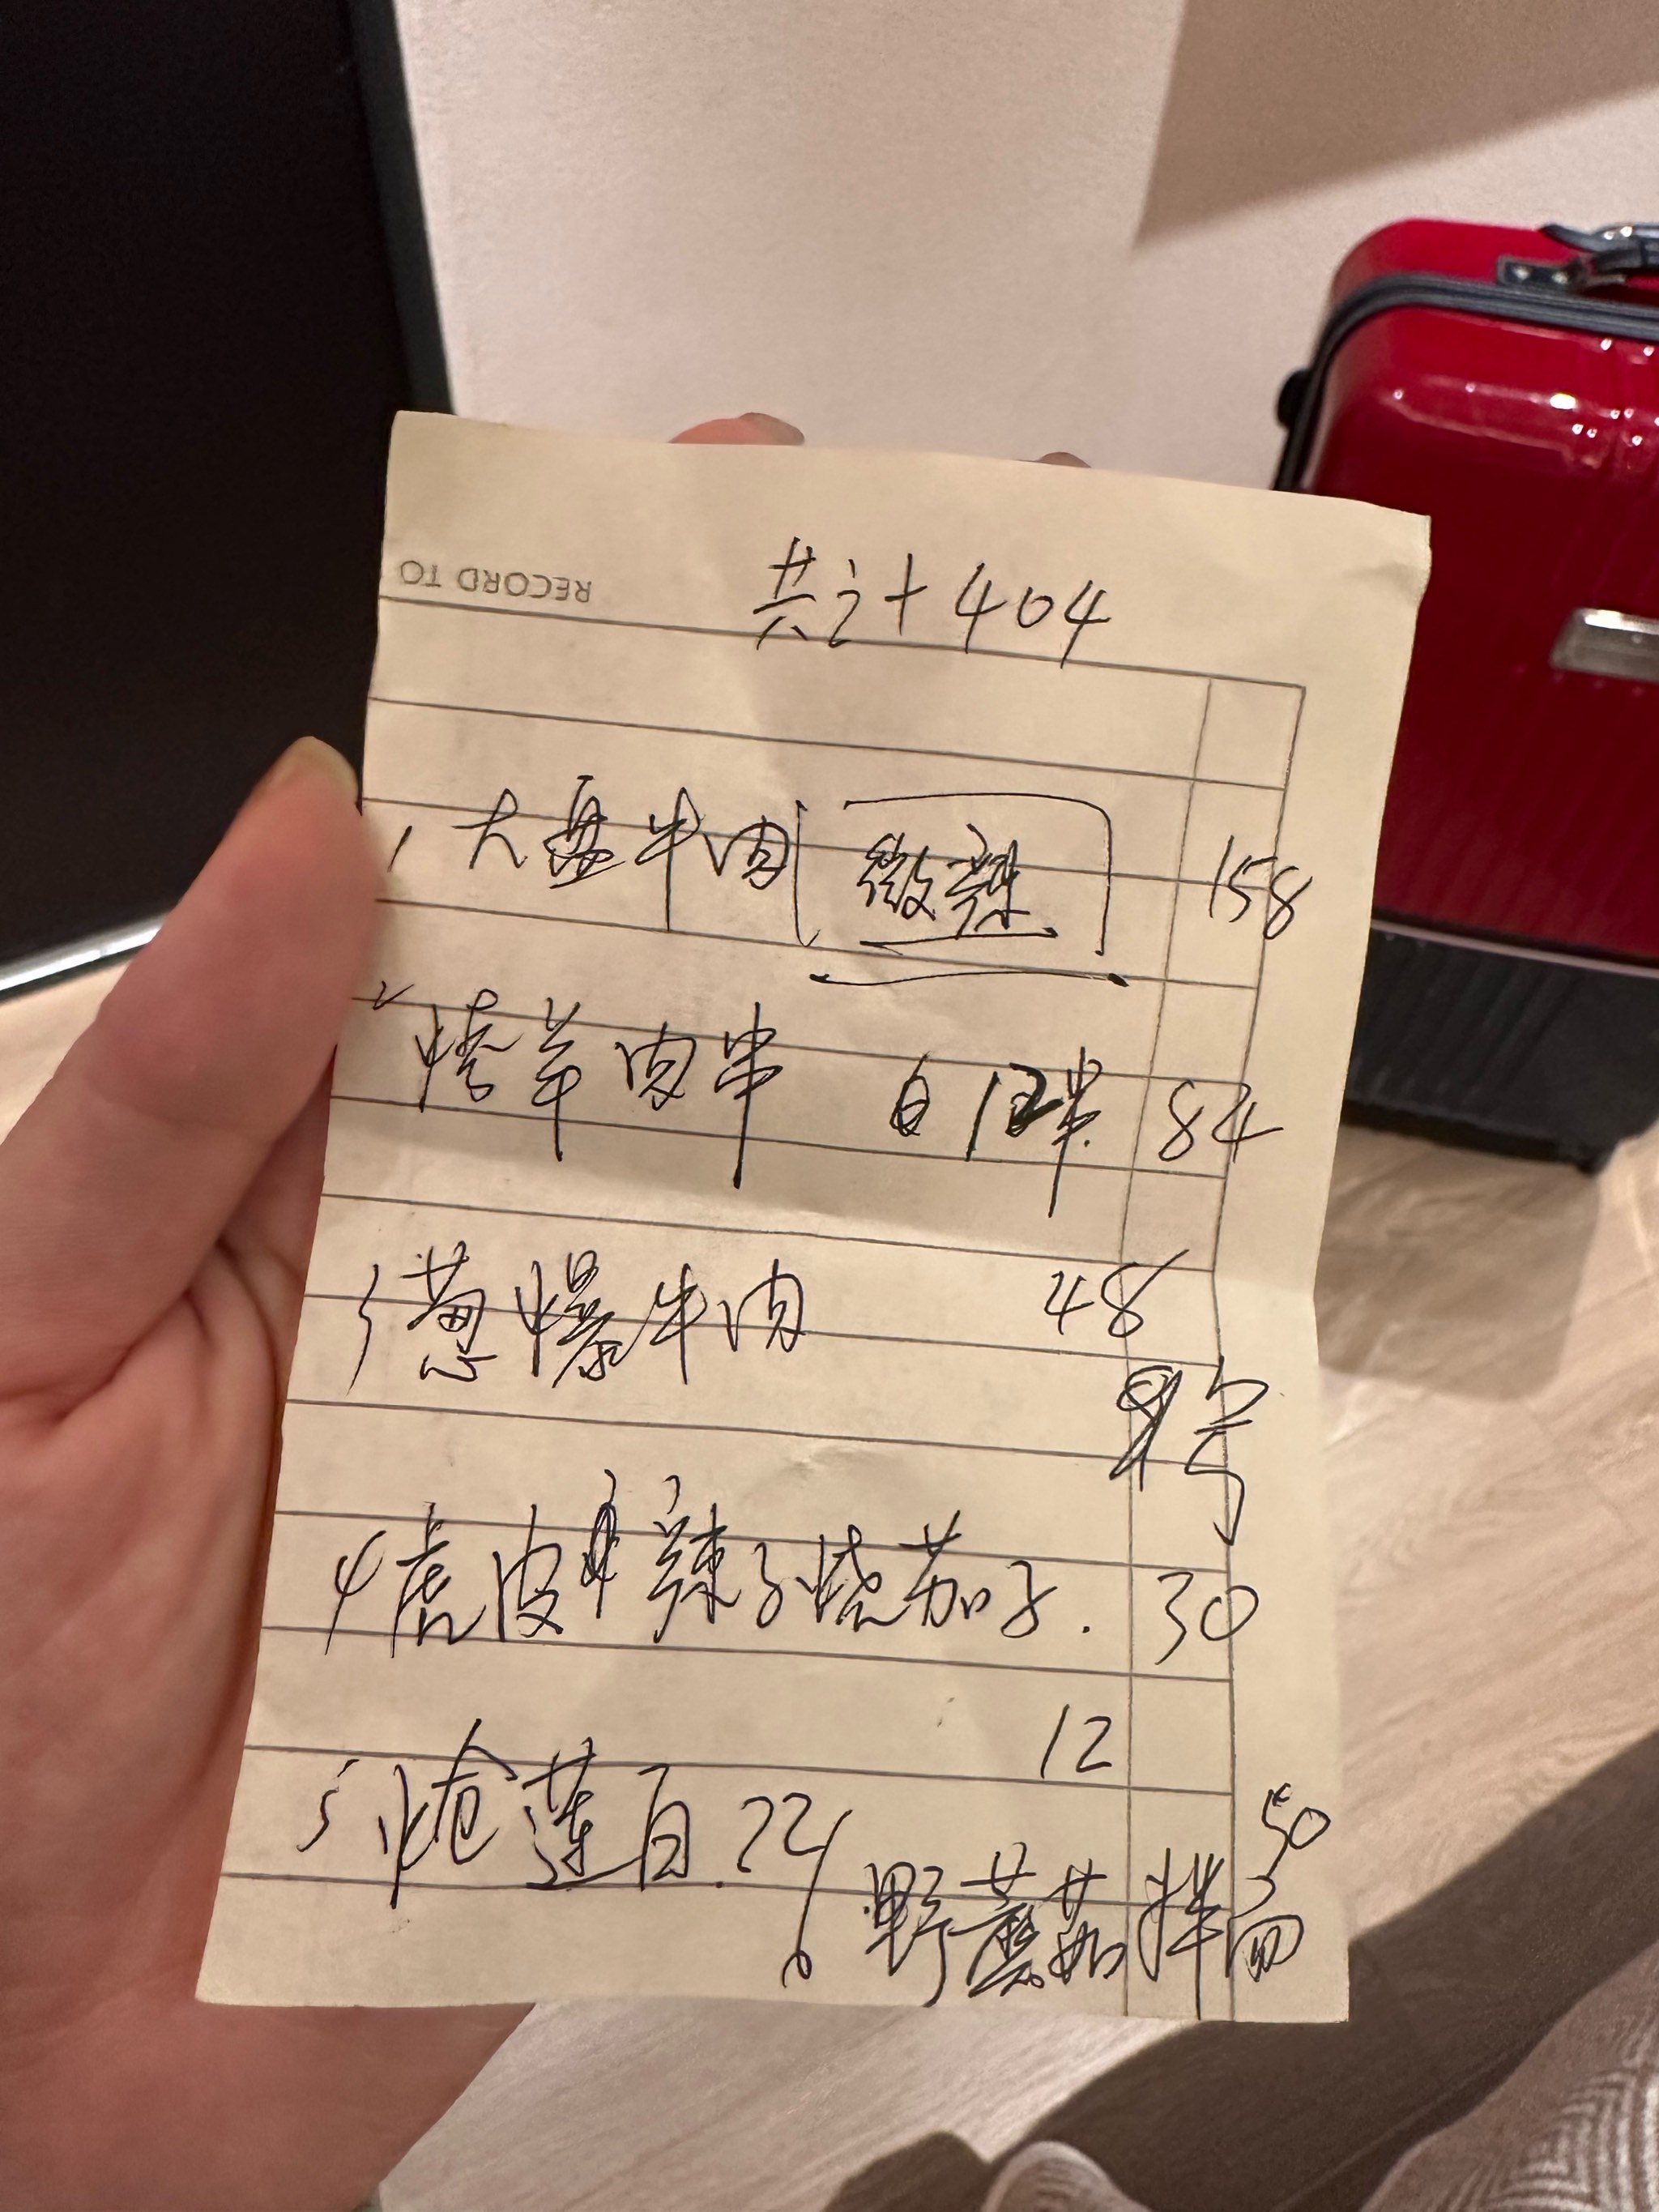 RECORD TO
共计404
1 大盘牛肉 微辣 158
2 烤羊肉串 白12串 84
3 葱爆牛肉 48
号
4 虎皮辣子烧茄子. 30
12
5 炝莲白.22
50
6 野蘑菇拌面